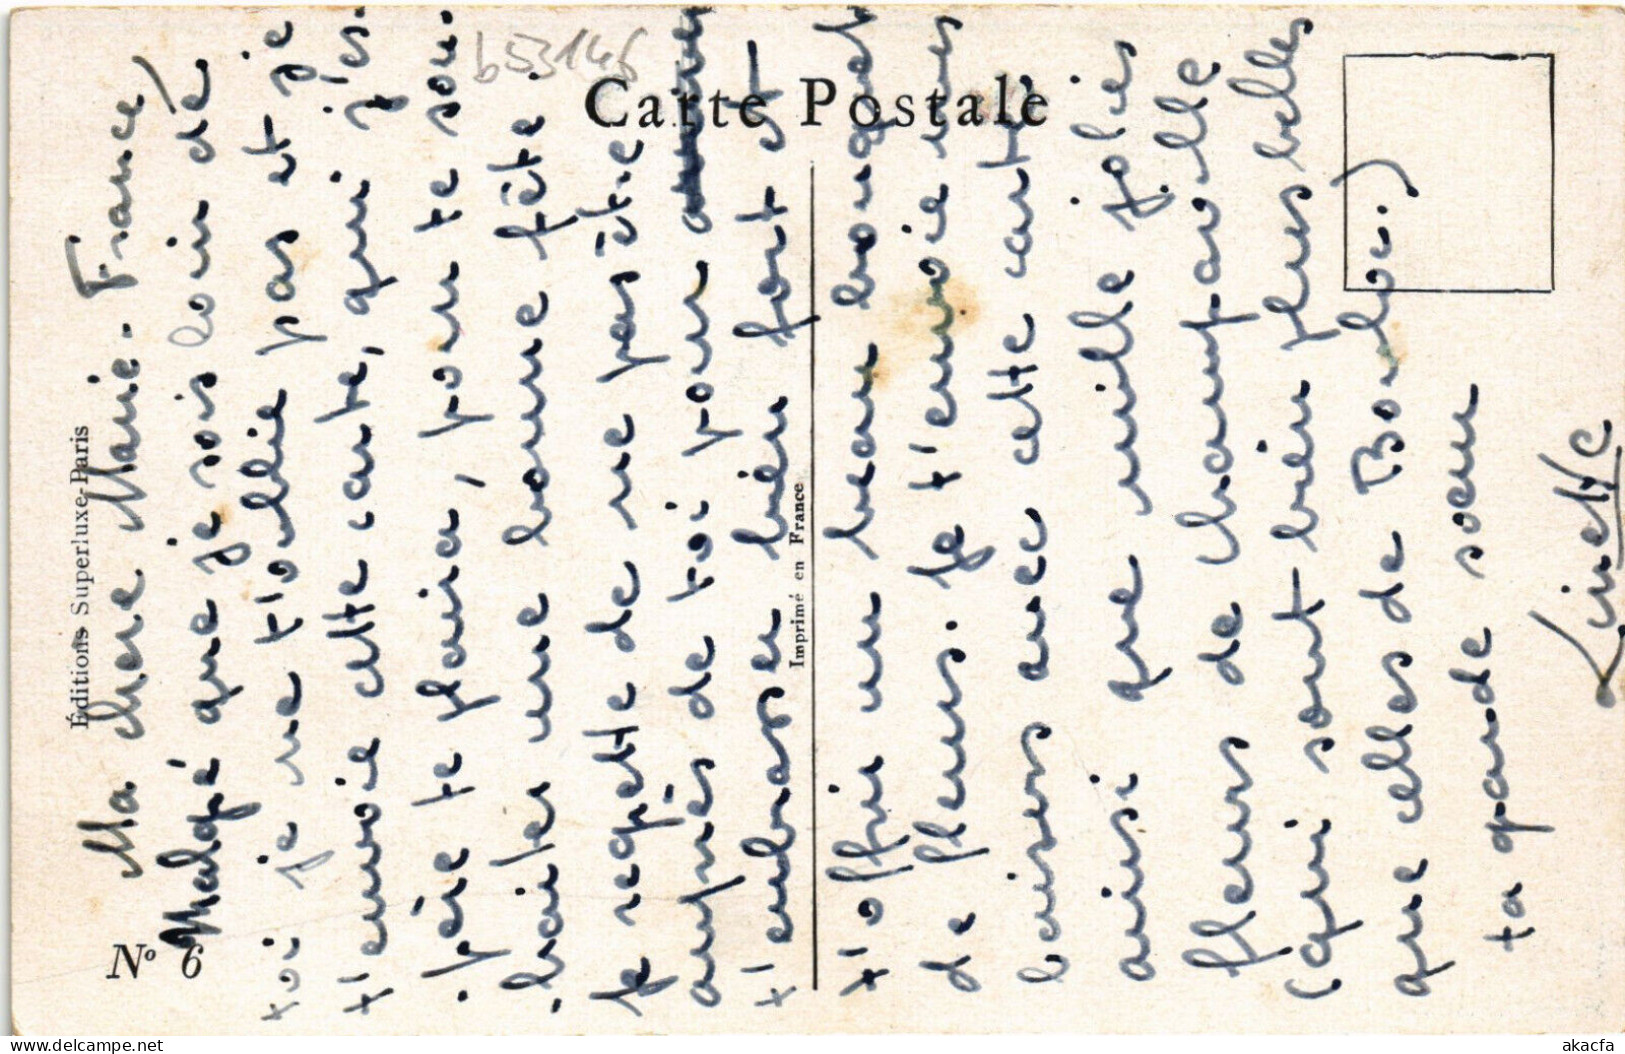 b53146
Carte Postale
Éditions Superluxe-Paris
Nº 6
Imprimé en France
Ma chère Marie-France,
Malgé que je sois loin de
toi je ne t'oublie pas et je
t'envoie cette carte, qui j'es-
père te plaira, pour te sou-
haiter une bonne fête.
Je regrette de ne pas être
auprès de toi pour
t'embrasser bien fort et
t'offrir un beau bouquet
de fleurs. Je t'envoie mes
baisers avec cette carte
ainsi que mille jolies
fleurs de champavolle
(qui sont bien plus belles
que celles de Bouloc.)
ta grande soeur
Linette
akacfa
www.delcampe.net